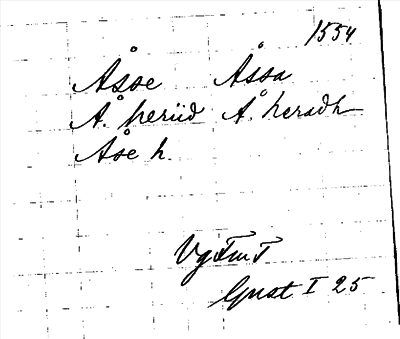 1554
Åsoe Åsoa
Å. heriid Å. heradh
Åse h.
Vg Fm T
Gust I 25